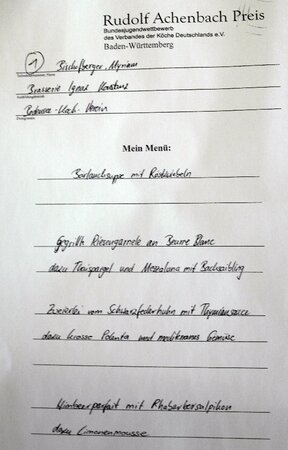 Rudolf Achenbach Preis
Bundesjugendwettbewerb
des Verbandes der Köche Deutschlands e.V.
Baden-Württemberg
1 Bischofberger, Myriam
Brasserie Ignaz Konstanz
Bodensee-Koch-Verein
Mein Menü:
Bärlauchsuppe mit Röstzwiebeln
Gegrillte Riesengarnele an Beurre Blanc
dazu Thaispargel und mit Bachsaibling
Zweierlei vom Schwarzfederhuhn mit Thymiansauce
dazu krosse Polenta und mediteranes Gemüse
Himbeerparfait mit Rhabarbersalpikon
dazu Limonenmousse